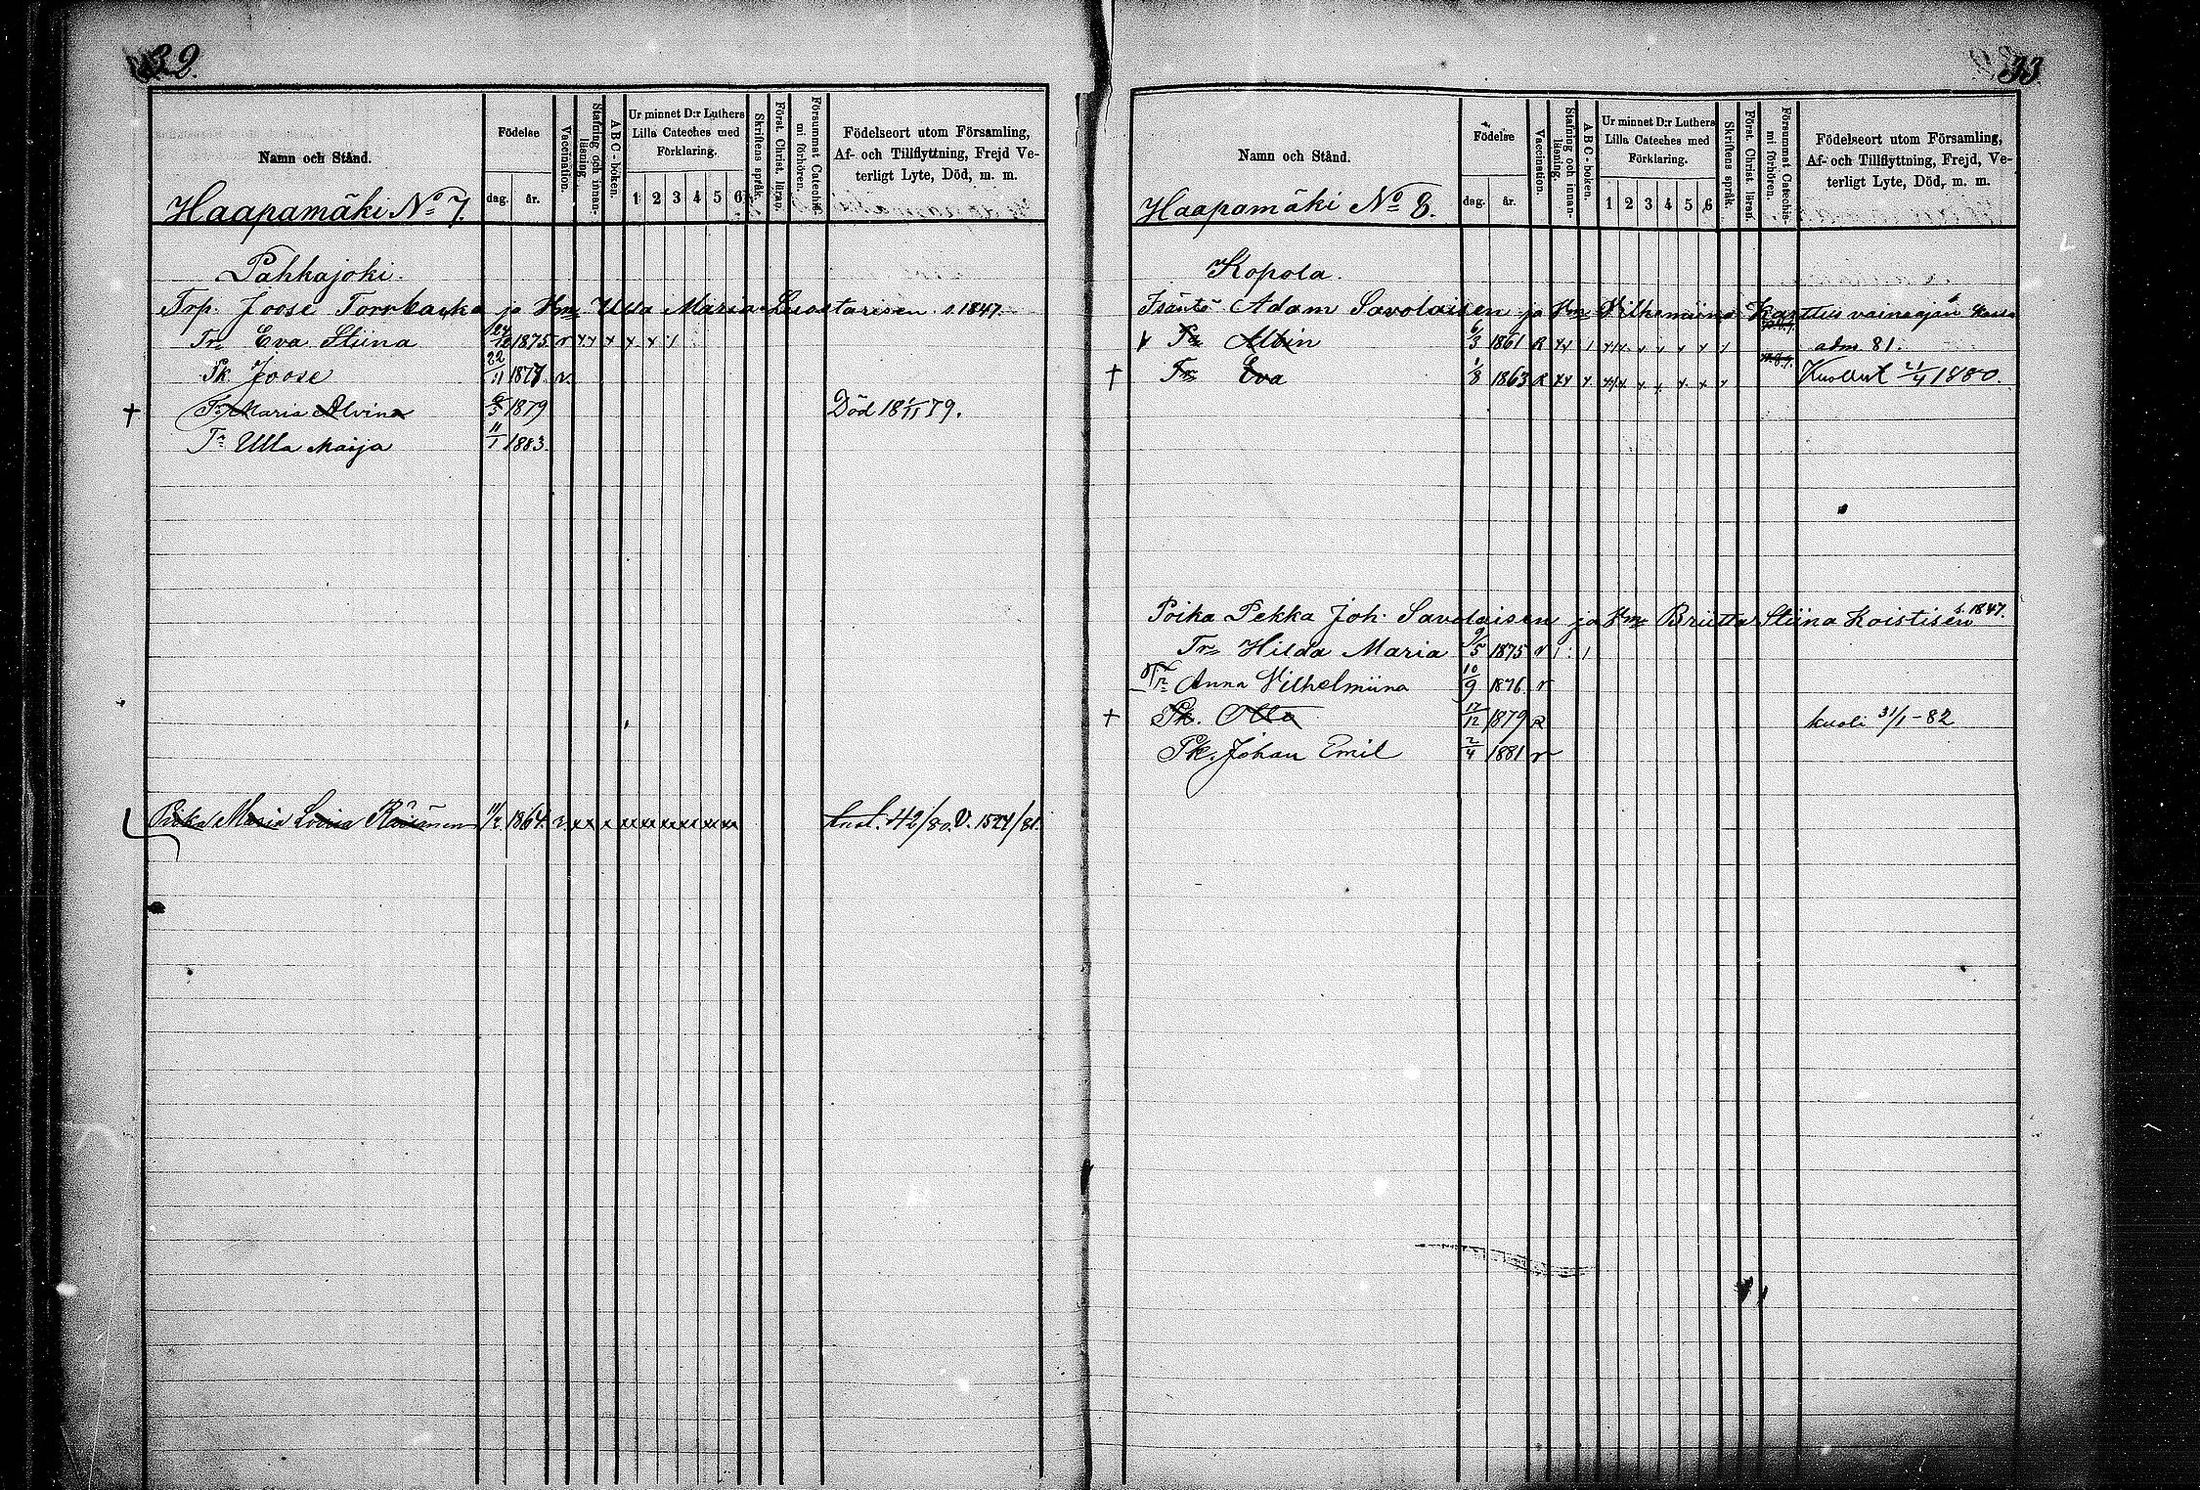 32.
Namn och Stånd.
Födelse
dag.
år.
Vaccination.
Stafning och innan-
läsning.
A B C-boken.
Ur minnet D:r Luthers
Lilla Cateches med
Förklaring.
1 2 3 4 5 6
Skriftens språk.
Först. Christ. läran.
Försummat Catechis-
mi förhören.
Födelseort utom Församling,
Af- och Tillflyttning, Frejd Ve-
terligt Lyte, Död, m. m.
Haapamäki No 7.
Pahkajoki.
Trp. Joose ja Hm Ulla Maria Luostarisen s. 1847.
Tr Eva Stiina 24/10 1875 v x x x x x /
Pk. Joose 22/11 1877 v.
† Tr Maria Alvina 1879 Död 18 /11 79.
Tr Ulla Maija 11/1 1883.
Piika Maria Lovisa Räisänen 11/2 1864. v. xx x xx xx xx xx xx xx tust. 42/80. V. 1527/81.
33
Namn och Stånd.
Födelse
dag.
år.
Vaccination.
Stafning och innan-
läsning.
A B C-boken.
Ur minnet D:r Luthers
Lilla Cateches med
Förklaring.
1 2 3 4 5 6
Skriftens språk.
Först. Christ. läran.
Försummat Catechis-
mi förhören.
Födelseort utom Församling,
Af- och Tillflyttning, Frejd, Ve-
terligt Lyte, Död, m. m.
Haapamäki No 8.
Kopola.
Isäntä Adam Savolaisen ja Hm Vilhelmiina Karttus vainaajan kanssa
Albin 6/3 1861 R xx / x/x x x x x x / adm 81.
† Tr Eva 1/8 1863 R xx x x/x x x x x x / Kuollut 21/4 1880.
Poika Pekka Joh. Savolaisen ja Hm Briitta Stiina Koistisen s. 1847.
Tr Hilda Maria 9/5 1875 v / : /
Tr Anna Vilhelmiina 10/9 1876 v
† Pk. Otto 17/12 1879 R kuoli 31/1-82
Pk. Johan Emil 2/4 1881 v